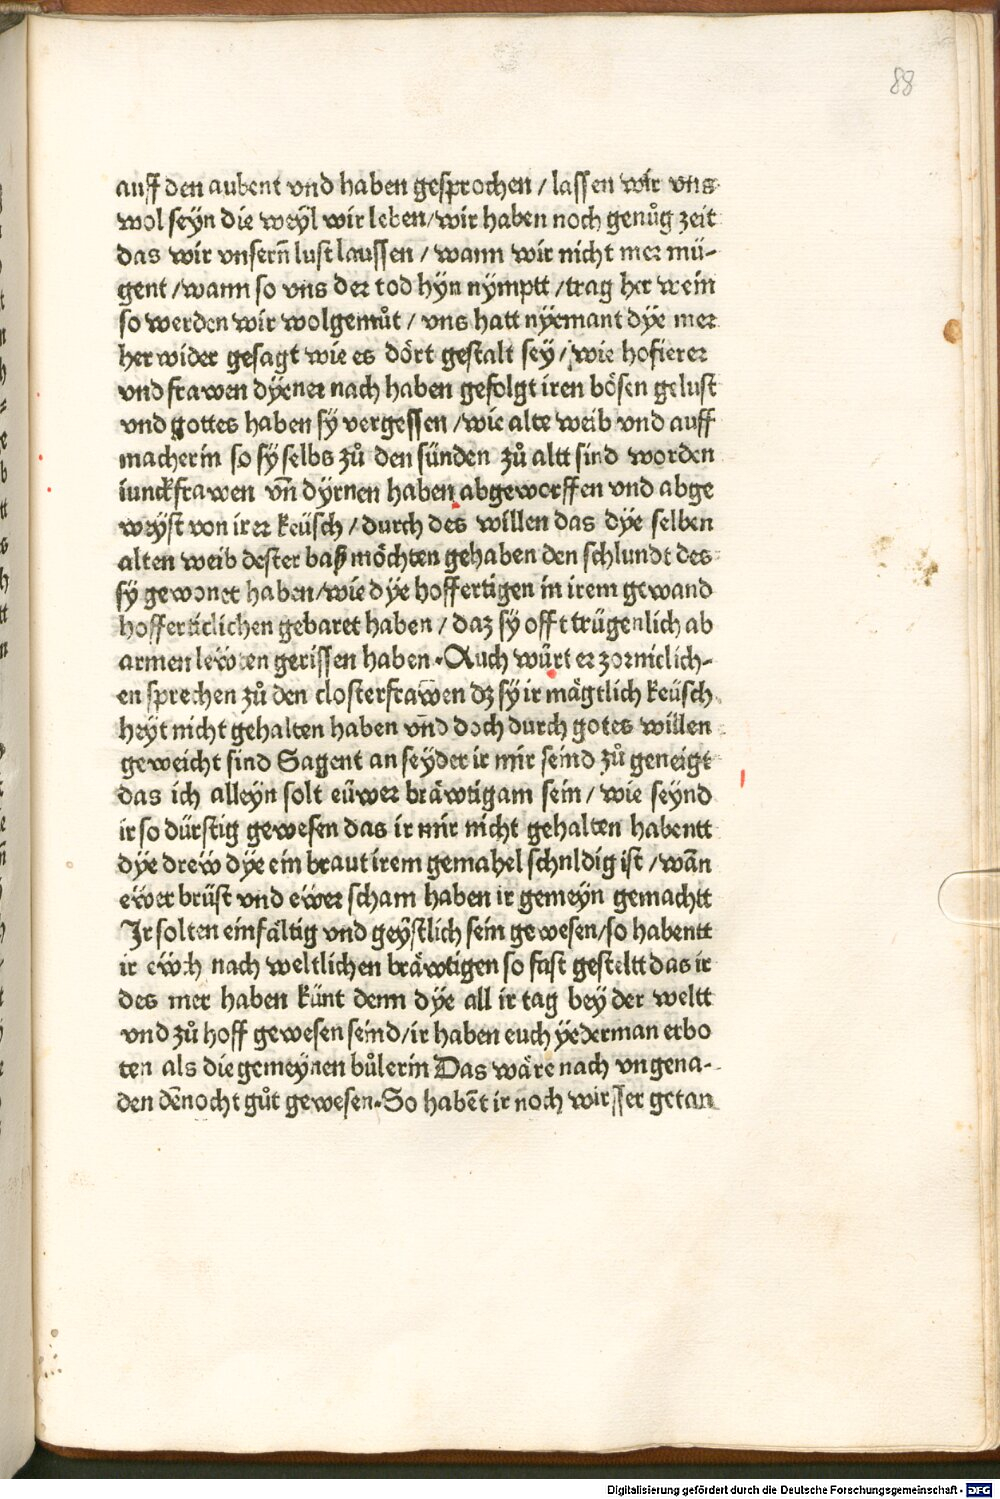 88
auff den aubent vnd haben gesprochen / lassen wir vns
wol seyn die weyl wir leben/wir haben noch genůg zeit
das wir vnsern̄ lust laussen / wann wir nicht mer mü-
gent /wann so vns der tod hyn nymptt /trag her wein
so werden wir wolgemůt / vns hatt nyemant dye mer
her wider gesagt wie es dört gestalt sey / wie hofierer
vnd frawen dyener nach haben gefolgt iren bösen gelust
vnd gottes haben sy vergessen /wie alte weib vnd auff
macherin so sy selbs zů den sünden zů altt sind worden
iunckfrawen vn̄ dyrnen haben abgeworffen vnd abge
weyst von irer keüsch / durch des willen das dye selben
alten weib dester baß möchten gehaben den schlundt des
sy gewonet haben/wie dye hoffertigen in irem gewand
hofferticlichen gebaret haben / daz sy offt trügenlich ab
armen leẅten gerissen haben. Auch würt er zorniclich-
en sprechen zů den closterfrawen dz sy ir mägtlich keüsch
heyt nicht gehalten haben vn̄d doch durch gotes willen
geweicht sind Sagent an seyder ir mir seind zů geneigt
das ich alleyn solt eüwer bräwtigam sein / wie seynd
ir so dürstig gewesen das ir mir nicht gehalten habentt
dye dreẅ dye ein braut irem gemahel schuldig ist / wān
eẅer brüst vnd eẅer scham haben ir gemeyn gemachtt
Ir solten einfältig vnd geystlich sein gewesen/so habentt
ir eẅch nach weltlichen bräwtigen so fast gesteltt das ir
des mer haben künt denn dye all ir tag bey der weltt
vnd zů hoff gewesen seind/ir haben euch yederman erbo
ten als die gemeynen bůlerin Das wäre nach vngena-
den den̄ocht gůt gewesen. So habēt ir noch wirsser getan
Digitalisierung gefördert durch die Deutsche Forschungsgemeinschaft - DFG